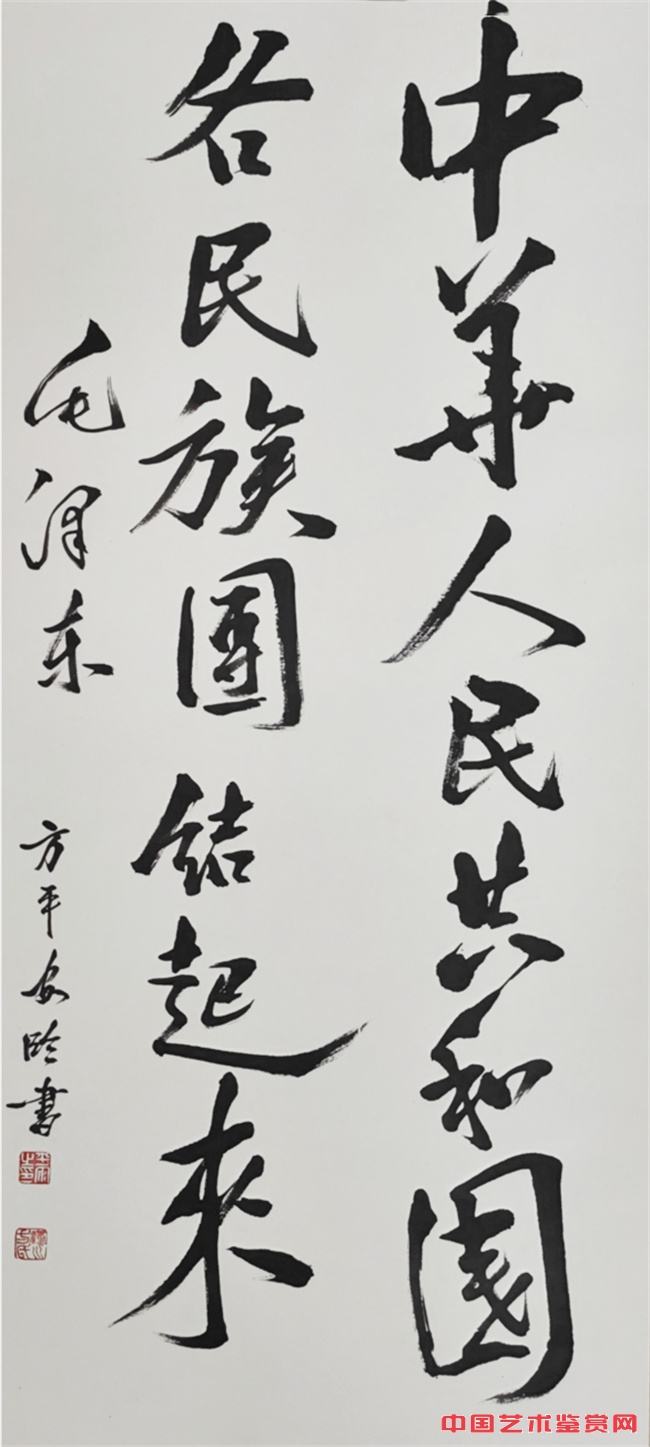 中華人民共和國
各民族團結起來
毛澤东
方平安
書
中国艺术鉴赏网